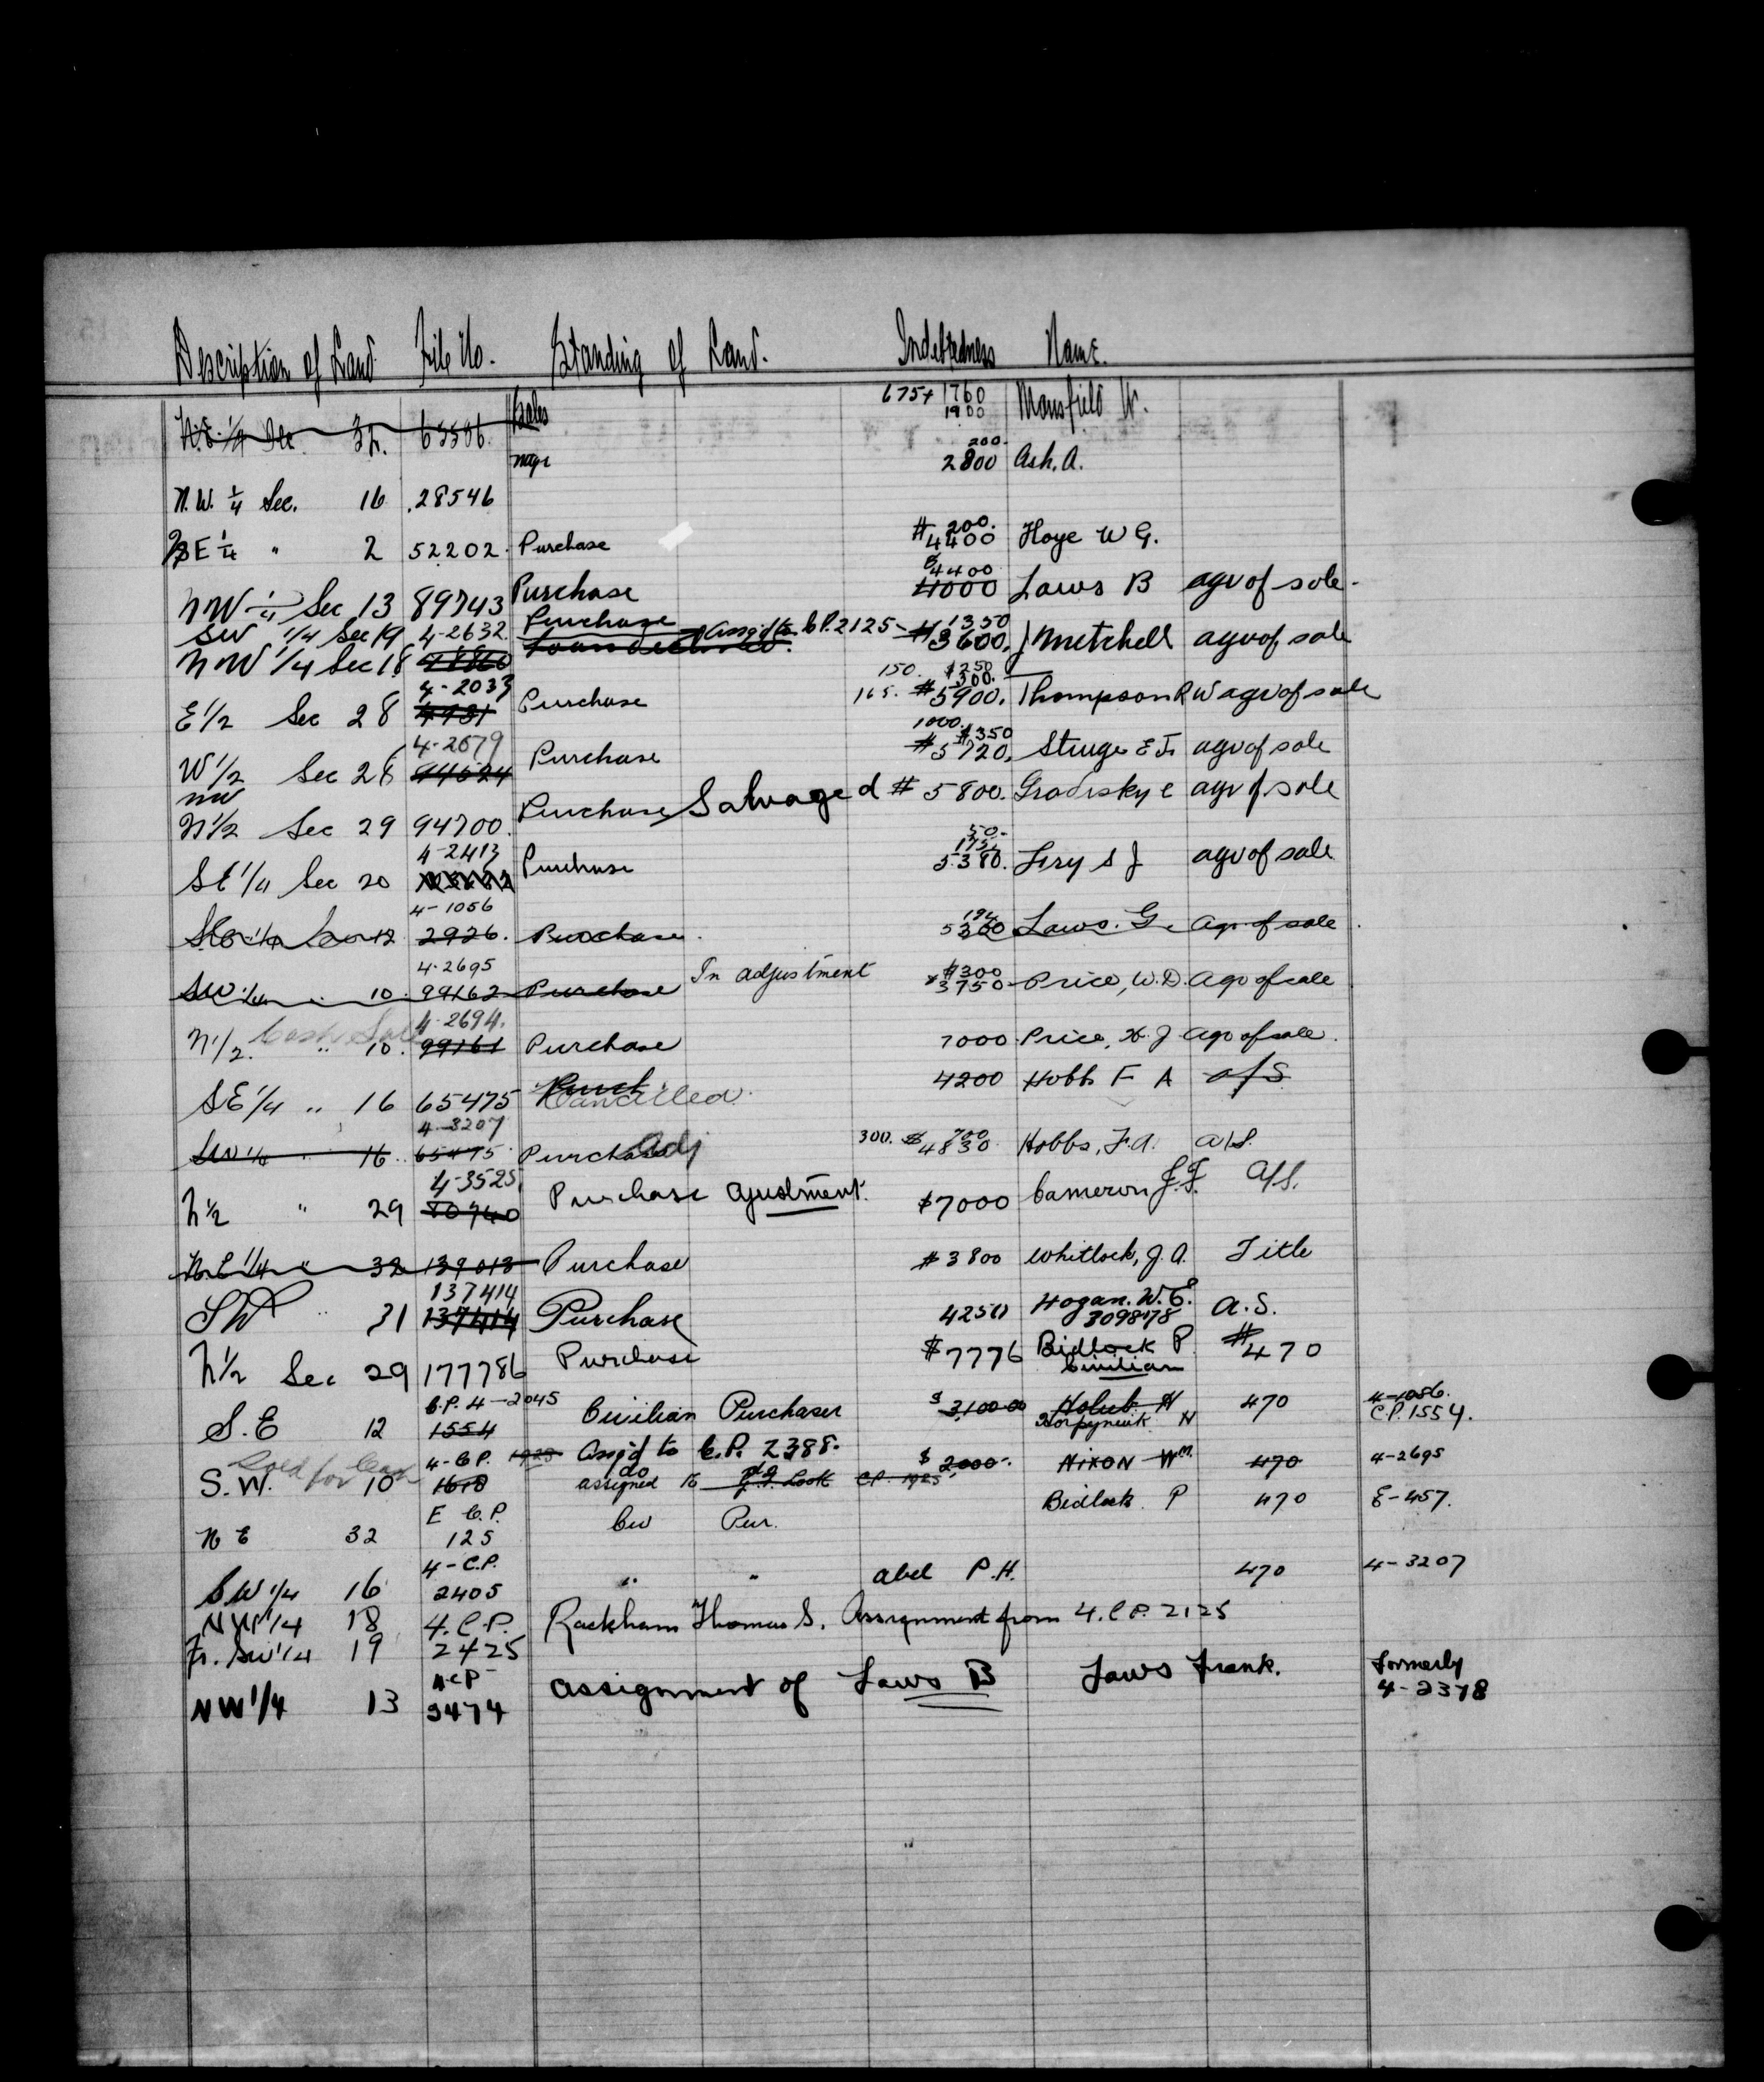 Description of Land File No. Standing of Land. Indebtedness Name.
675+ 1760
N.E. 1/4 Sec 32. 63506. Sales 1900 Mansfield W.
200.
mage 2800 Ash, A.
N.W. 1/4 Sec. 16 .28546
# 200.
SE 1/4 " 2 52202. Purchase 4400 Hoye W G.
$4400
NW 1/4 Sec 13 89743 Purchase 4000 Laws B agr of sale.
SW 1/4 Sec 19 4-2632. Purchase Assg'd to C.P. 2125- 1350
NW 1/4 Sec 18 #3600. J Mitchell agr of sale
4-2033 150. $250
300.
E 1/2 Sec 28 4731 Purchase 165. #5900. Thompson R W agr of sale
4-2679 1000. $350
W 1/2 Sec 28 94624 Purchase #5720. Sturge E J. agr of sale
NW
N 1/2 Sec 29 94700. Purchase Salvaged # 5800. Gradisky C agr of sale
4-2413 50.
175.
SE 1/4 Sec 20 Purchase 5380. Fry S J agr of sale
4-1056 194
Sec 12 2926. Purchase. 5360 Laws. G. Agr. of sale
4-2695 In adjustment $300
SW 1/4 " 10. 99162 Purchase 3750 Price, W.D. Agr of sale
Cash Sale 4-2694.
N 1/2. " 10. 99161 Purchase 7000 Price, H. J Agr of sale.
SE 1/4 " 16 65475 Purch Cancelled. 4200 Hobbs F A a/s
4-3207
SW 1/4 " 16. 65475 Purchase Adj 300. $ 700 4830. Hobbs, F.A. a/s.
4-3525
N 1/2 " 29 80740 Purchase Ajustment. $7000 Cameron J.F. A/S.
N.E 1/4 " 32 139013 Purchase #3800 Whitlock, J.A. Title
137414
SW " 31 137414 Purchase 4250 Hogan. W.E. A.S.
309878
N 1/2 Sec 29 177786 Purchase $7776 Bidlock P. #470
Civilian
C.P. 4-2045
S.E 12 1554 Civilian Purchaser $3,100.00 Holub N 470 4-1056. C.P. 1554.
N
Sold for Cash 4-C.P. 1925 Assg'd to C.P. 2388.
S.W. 10 1618 do assigned to Look C.P. 1925 $2000- Nixon Wm. 470 4-2695
E C.P.
N E 32 125 Civ Pur. Bidlock. P 470 E-457.
4-C.P.
SW 1/4 16 2405 " " Abel P.H. 470 4-3207
NW 1/4 18 4.C.P. Rackham Thomas S. Assignment from 4.C.P. 2125
Fr. SW 1/4 19 2425
4-CP
NW 1/4 13 2474 Assignment of Laws B Laws Frank. Formerly 4-2378